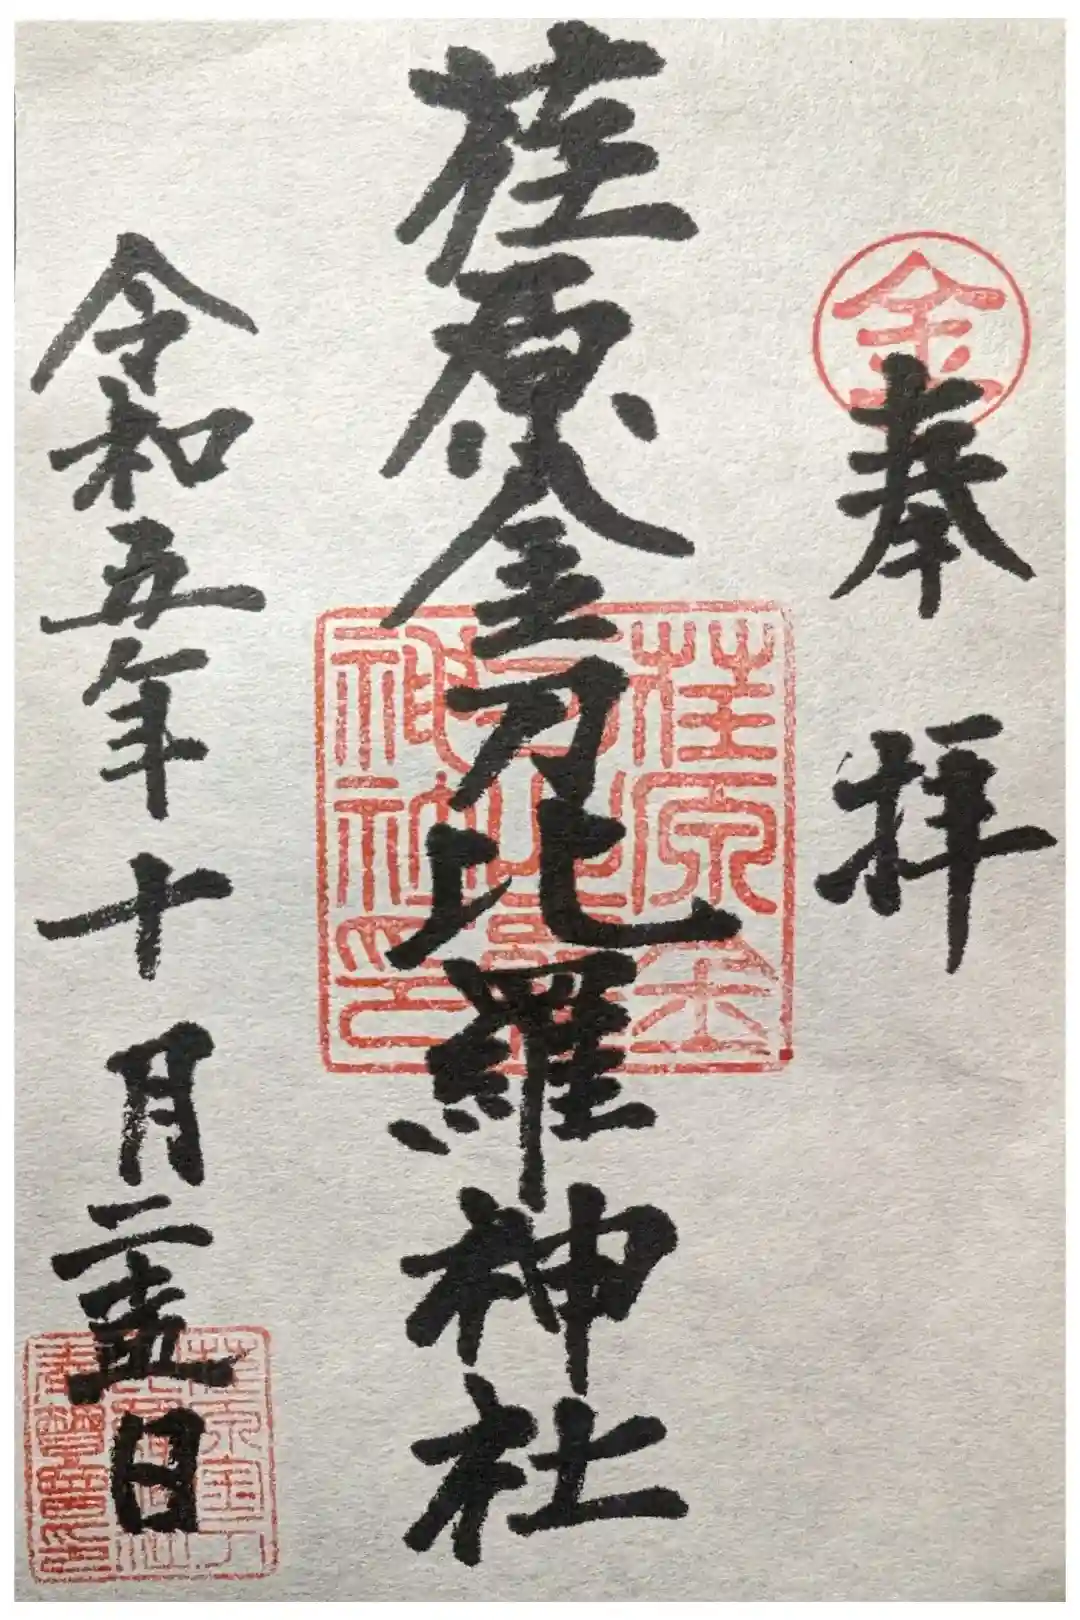 金
奉拝
桂原金刀比羅神社
桂原金
刀比羅
神社印
令和五年十月二十五日
桂原金刀
比羅神社